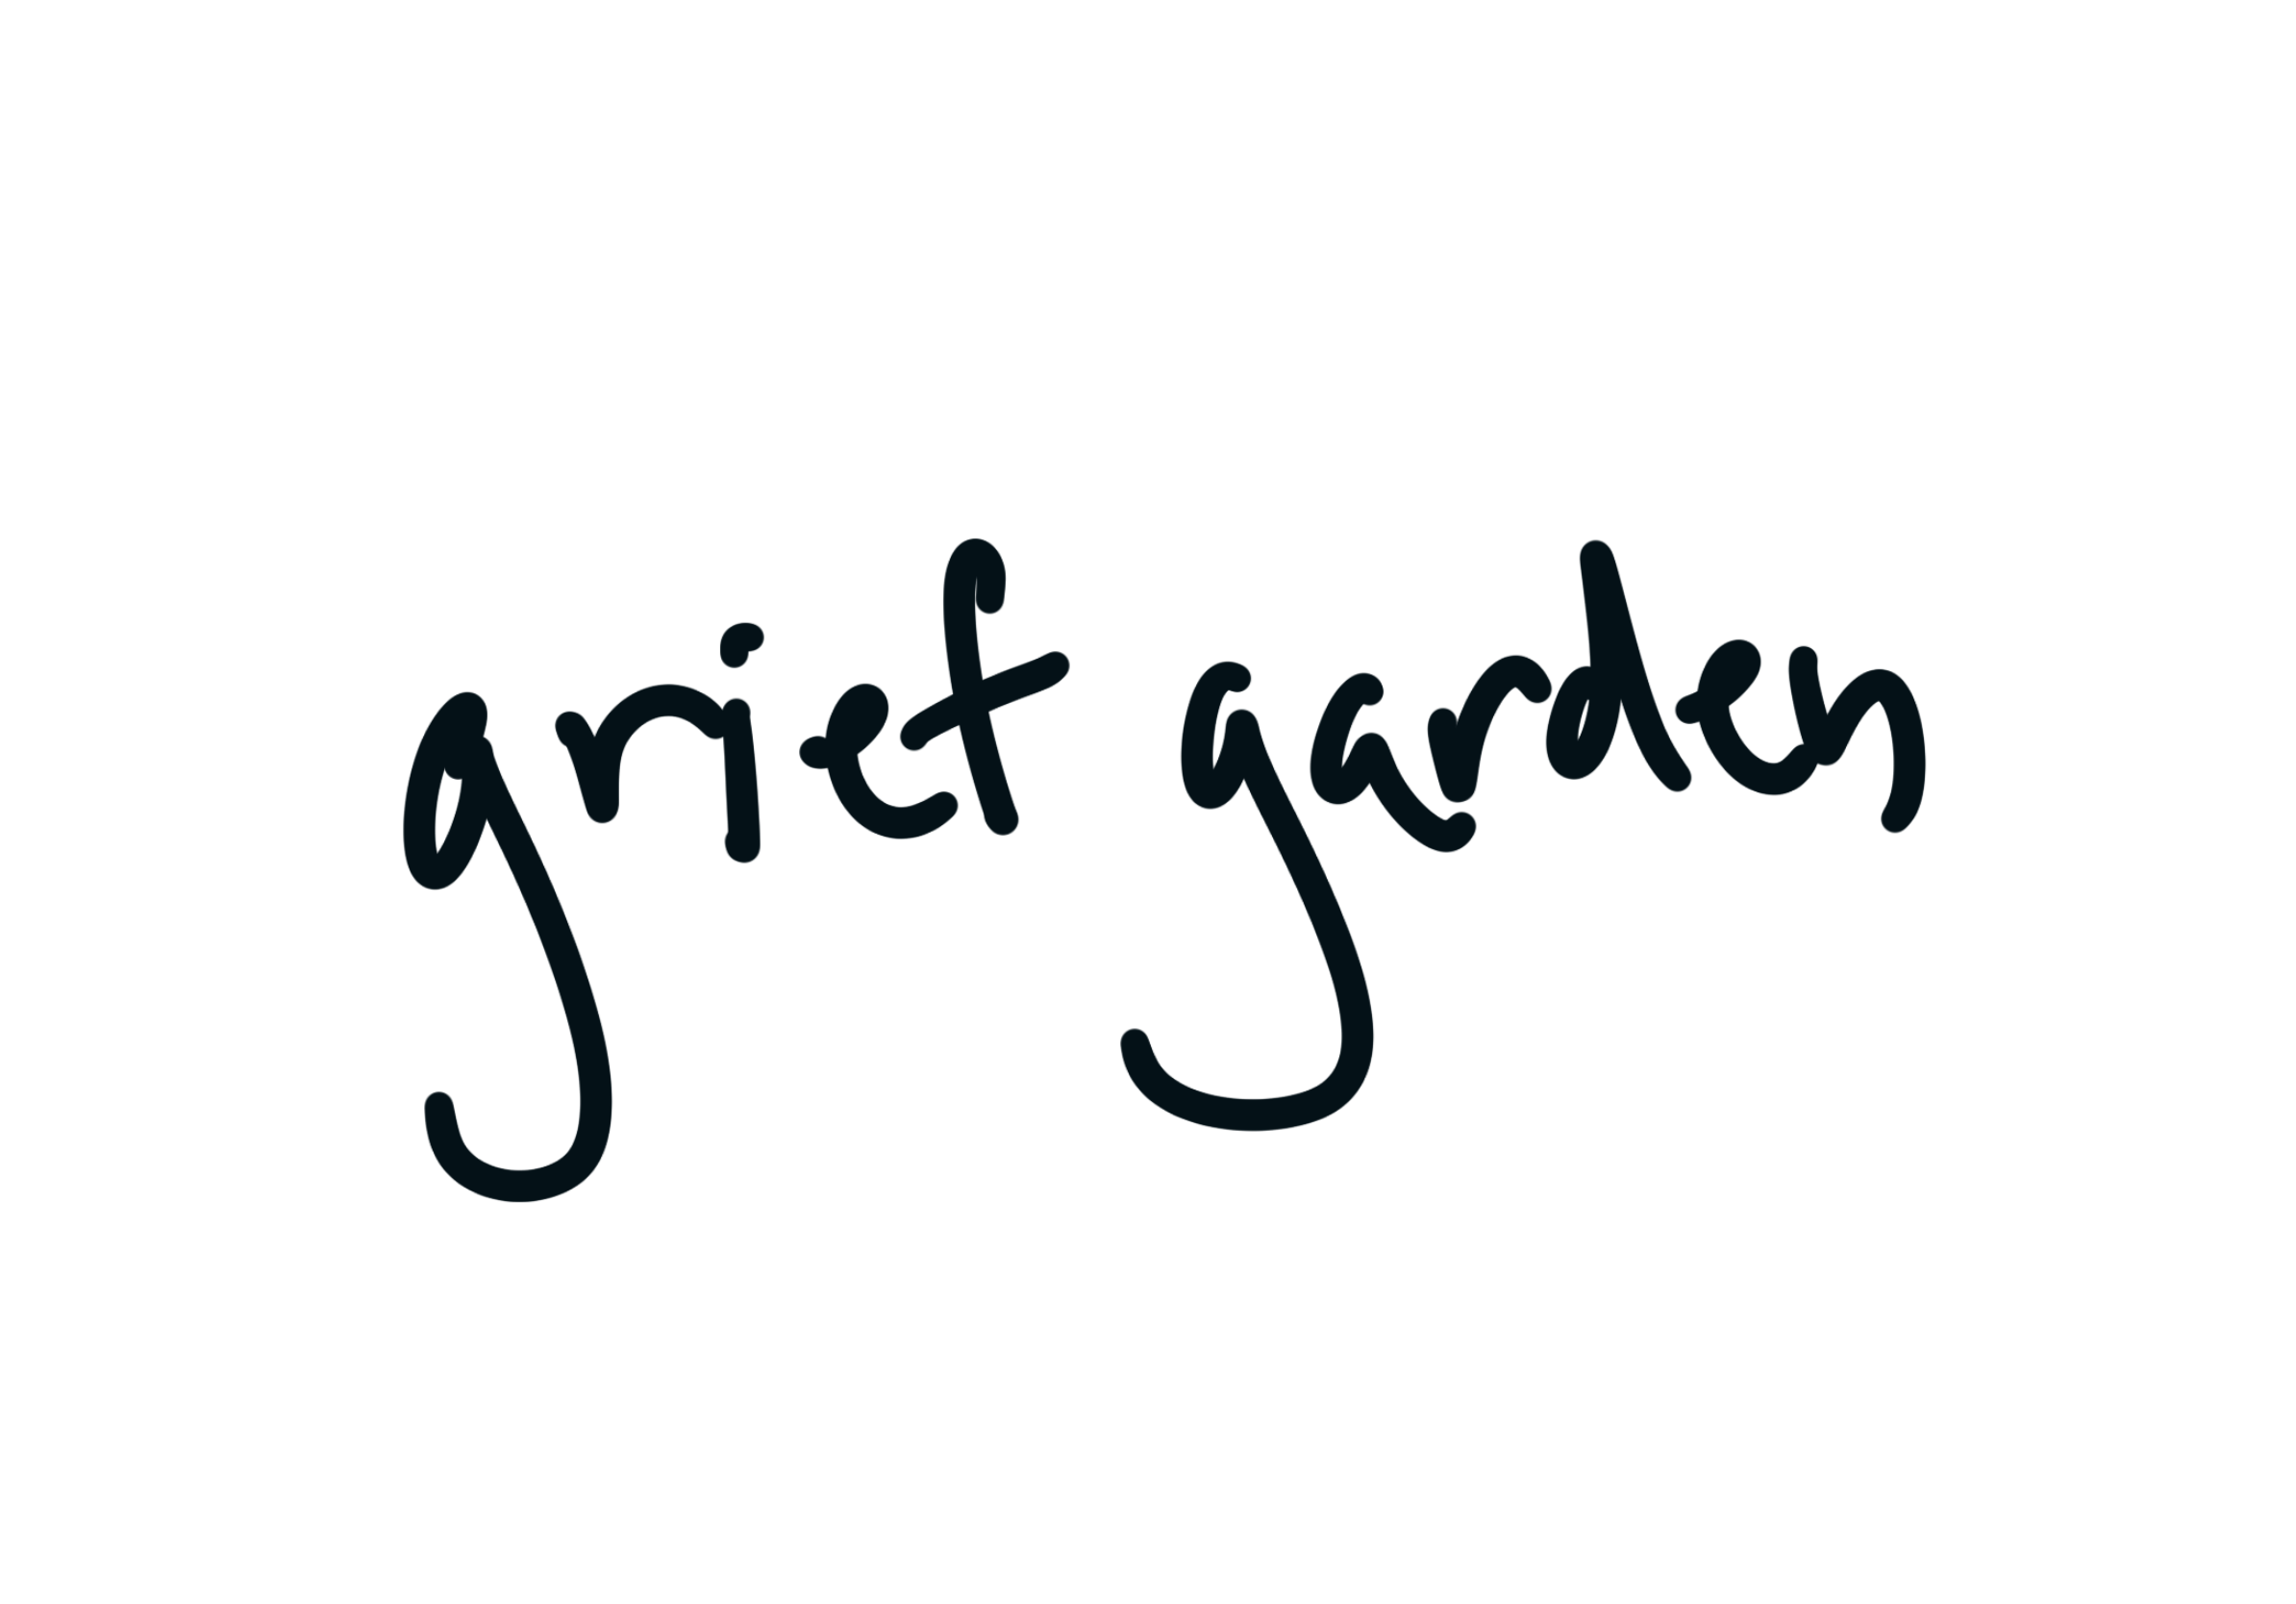 grief garden